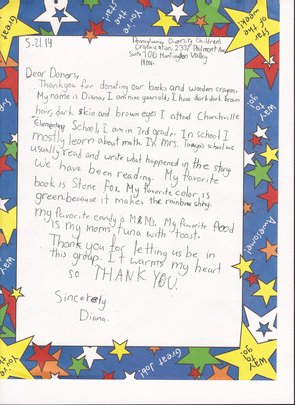 5-21-14
Pennsylvania Diversity Children's
Organization 2337 Philmont Ave
Suite 706 Huntingdon Valley
Dear Donors,
Thank you for donating our books and wooden crayons.
My name is Diana, I am nine years old, I have dark dark brown
hair, dark skin and brown eyes I attend
Elementary School, I am in 3rd grade. In school I
mostly learn about math. In mrs. school we
usually read and write what happened in the story
We have been reading. My favorite
book is Stone Fox. My favorite color is
green because it makes the rainbow shiny.
my favorite candy is M&Ms. My favorite food
is my mom's tuna with toast.
Thank you for letting us be in
this group. It warms my heart
so THANK YOU.
Sincerely,
Diana
Great
You're the
Star of the week!
Way to go
Awesome!
Way to go
Great Job!